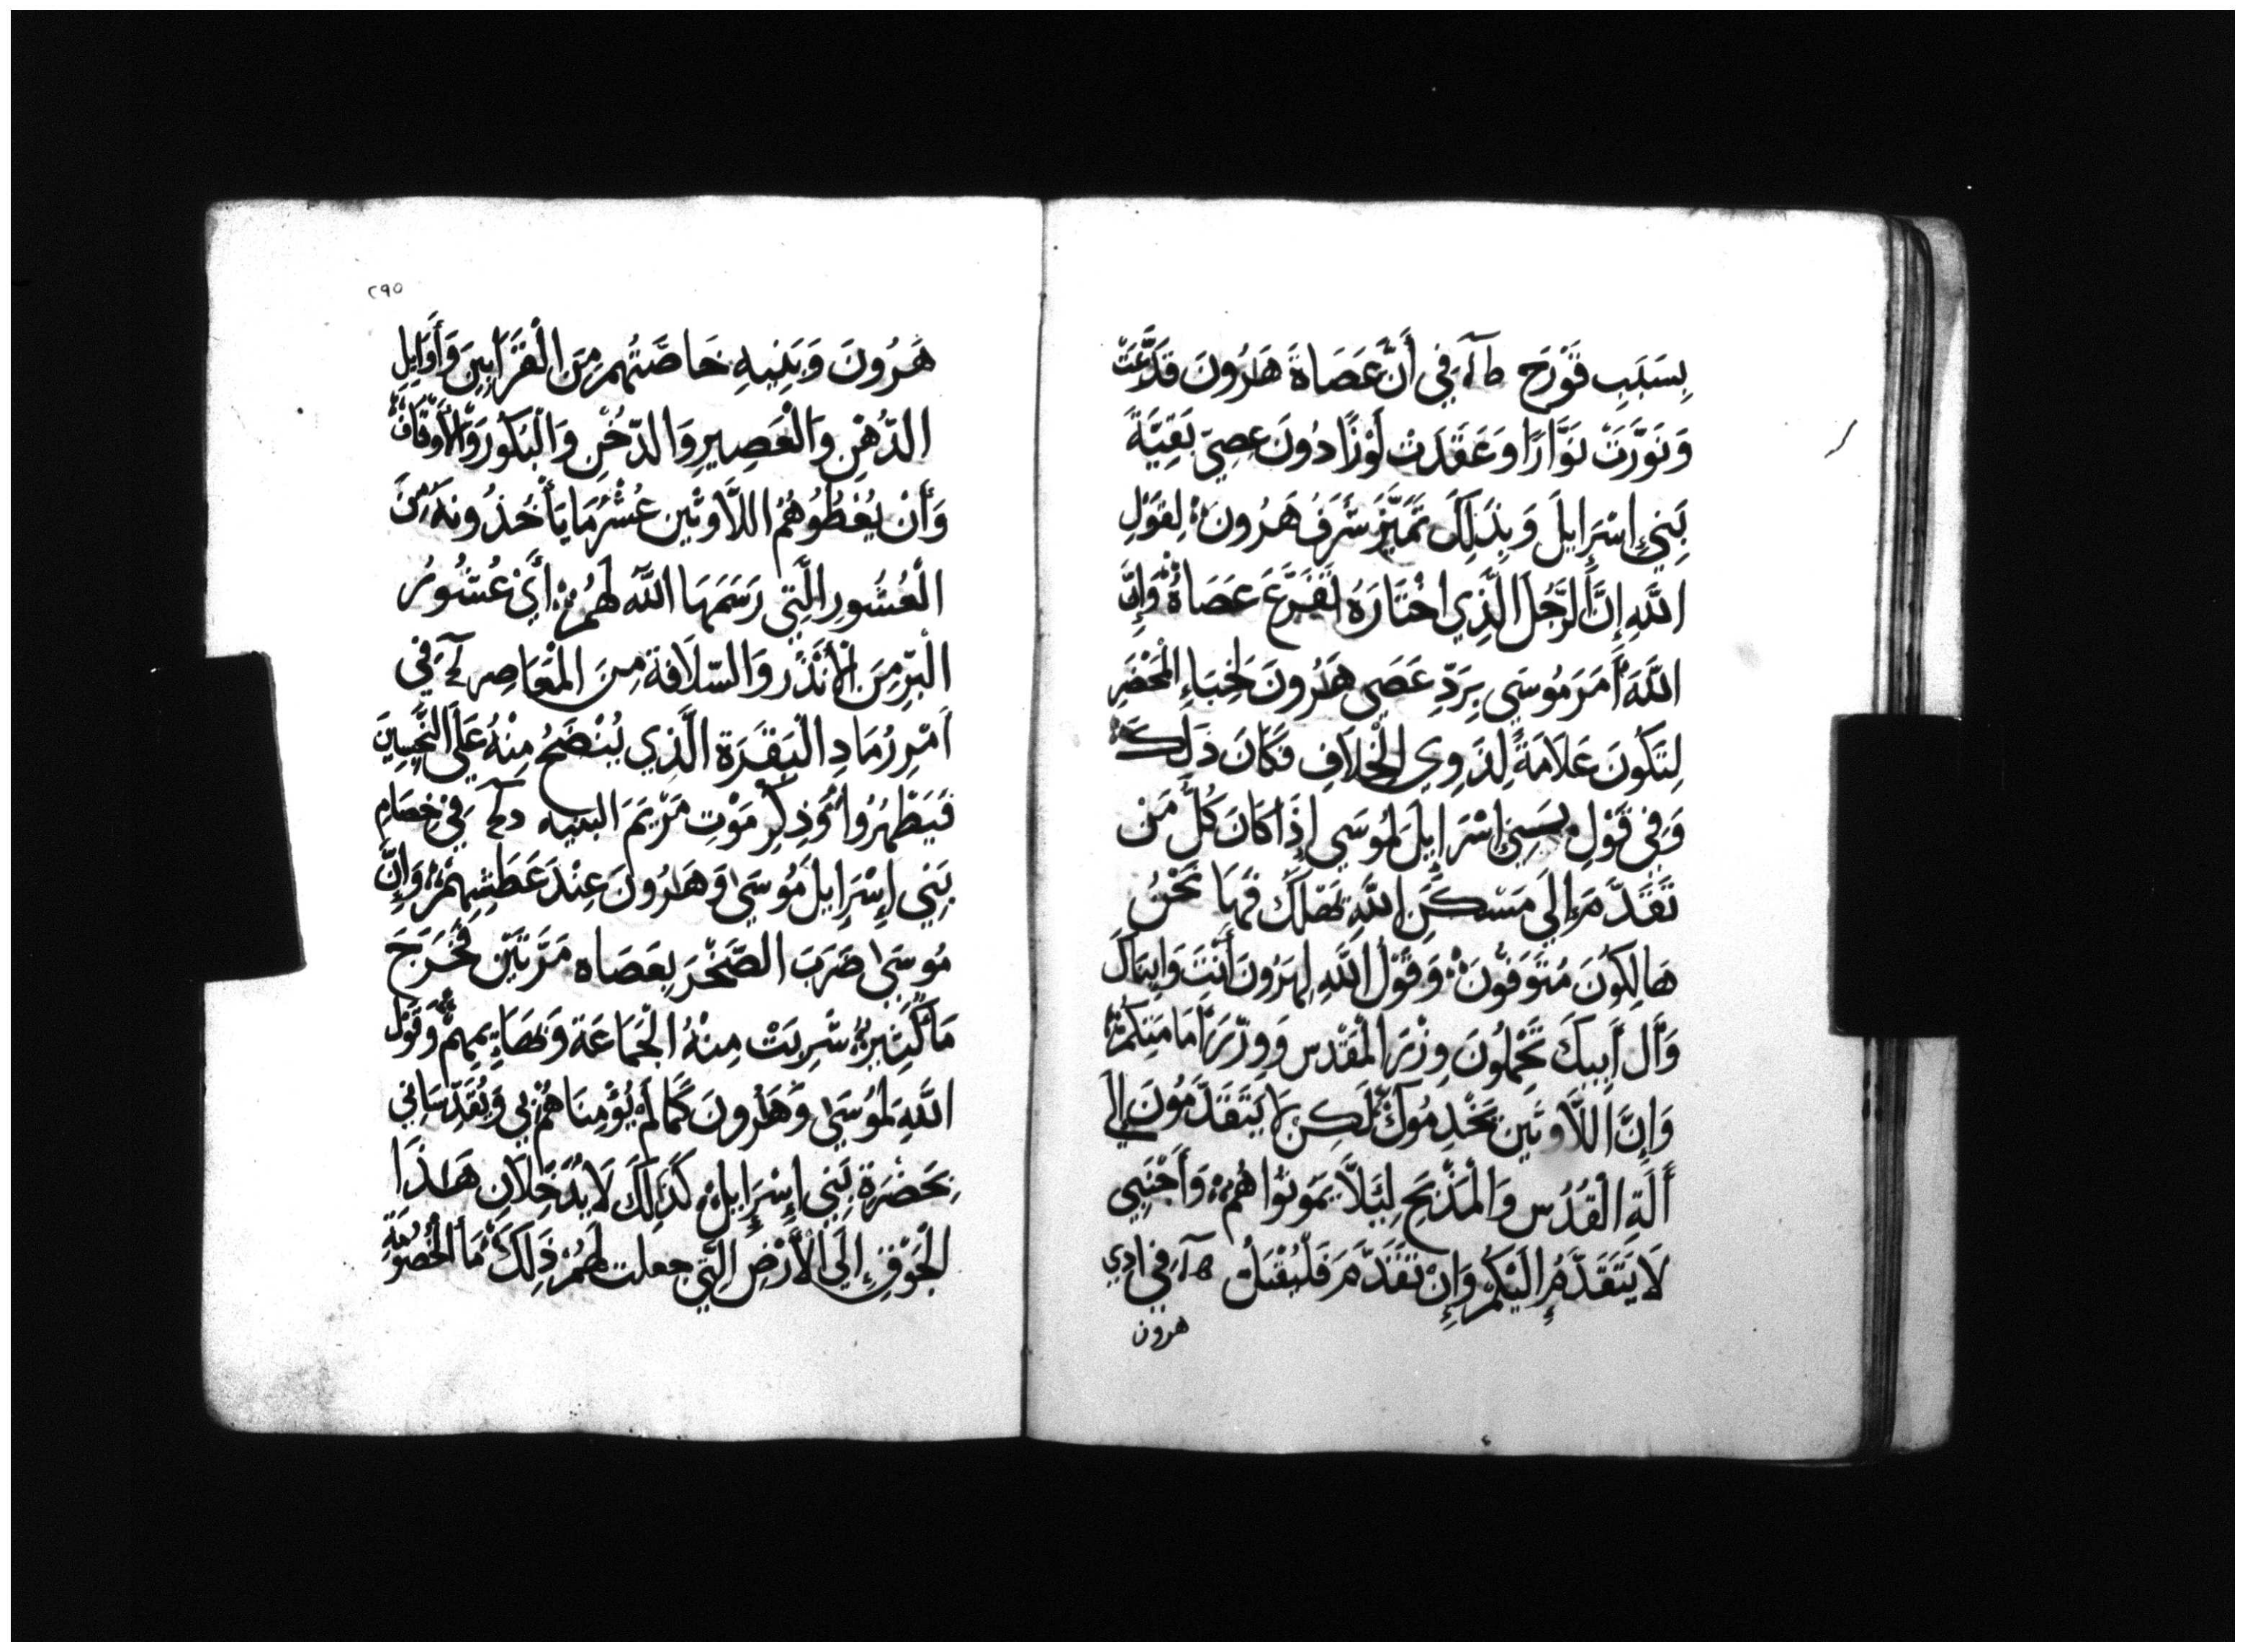 بِسَبَبِ قَوْرَحِ ط آ فِي أَنَّ عَصَاةَ هَارُونَ قَدَّعَتْ
وَنَوَّرَتْ نَوَّارًا وَعَقَدَتْ لَوْزًا دُونَ عِصِيّ بَقِيَّةَ
بَنِي إِسْرَايِلَ وَبِذَلِكَ تَمَيَّزَ شَرَفُ هَرُونَ لِقَوْلِ
اللَّهِ إِنَّ الرَّجُلَ الَّذِي اخْتَارَهُ تَفَرَّعَ عَصَاهُ وَإِنَّ
اللَّهَ أَمَرَ مُوسَى بِرَدِّ عَصَى هَارُونَ لِخِبَاءِ الْمَحْضَرِ
لِتَكُونَ عَلَامَةً لِذَوِي الْخِلَافِ فَكَانَ ذَلِكَ
وَفِي قَوْلِ بَنِي إِسْرَايِلَ لِمُوسَى إِذَا كَانَ كُلُّ مَنْ
تَقَدَّمَ إِلَى مَسْكَنِ اللَّهِ يَهْلَكُ فَهَا نَحْنُ
هَالِكُونَ مُتَوَفَّوْنَ وَقَوْلُ اللَّهِ لِهَرُونَ أَنْتَ وَابْنَاكَ
وَآلُ أَبِيكَ تَحْمِلُونَ وِزْرَ الْمَقْدِسِ وَوِزْرَ إِمَامَتِكُمْ
وَإِنَّ اللَّاوِيِّينَ يَخْدِمُوكَ لَكِنْ لَا يَتَقَدَّمُونَ إِلَى
أَلَةِ الْقُدُسِ وَالْمَذْبَحِ لِئَلَّا يَمُوتُوا هُمْ وَأَجْنَبِي
لَا يَتَقَدَّمُ إِلَيْكُمْ وَإِنْ تَقَدَّمَ فَلْيُقْتَلْ هـ آ فِي
هرون
٢٩٥
هَرُونَ وَبَنِيهِ خَاصَّتُهُمْ مِنَ الْقَرَابِينَ وَأَوَايِلِ
الدُّهْنِ وَالْعَصِيرِ وَالدُّخْنِ وَالْبَكُورِ وَالْأَوْقَافِ
وَأَنْ يُعْطُوهُمْ اللَّاوِيِّينَ عُشْرَ مَا يَأْخُذُونَهُ مِنَ
الْعُشُورِ الَّتِي رَسَمَهَا اللَّهُ لَهُمْ أَيْ عُشُورُ
الْبُرِّ مِنَ الْأَنْذَرِ وَالسُّلَافَةِ مِنَ الْمَعَاصِرِ فِي
أَمْرِ رُمَادِ الْبَقَرَةِ الَّذِي يُنْضَحُ مِنْهُ عَلَى النَّجِسِينَ
فَيَطْهُرُوا وَذِكْرِ مَوْتِ مَرْيَمَ النبيه فِي خِصَامِ
بَنِي إِسْرَايِلَ مُوسَى وَهَارُونَ عِنْدَ عَطَشِهِمْ وَإِنَّ
مُوسَى ضَرَبَ الصَّخْرَ بِعَصَاهُ مَرَّتَيْنِ فَخَرَجَ
مَا كَثِيرٌ شَرِبَتْ مِنْهُ الْجَمَاعَةُ وَبَهَايِمِهِمْ وَقَوْلُ
اللَّهِ لِمُوسَى وَهَارُونَ كَمَا لَمْ يُؤْمِنَا هُمْ بِي وَيُقَدِّسَانِي
بِحَضْرَةِ بَنِي إِسْرَايِلَ كَذَلِكَ لَا يُدْخِلَانِ هَاذَا
الْجَوْقِ إِلَى الْأَرْضِ الَّتِي جعلت لَهُمْ ذَلِكَ مَا الْخُصُومَةِ